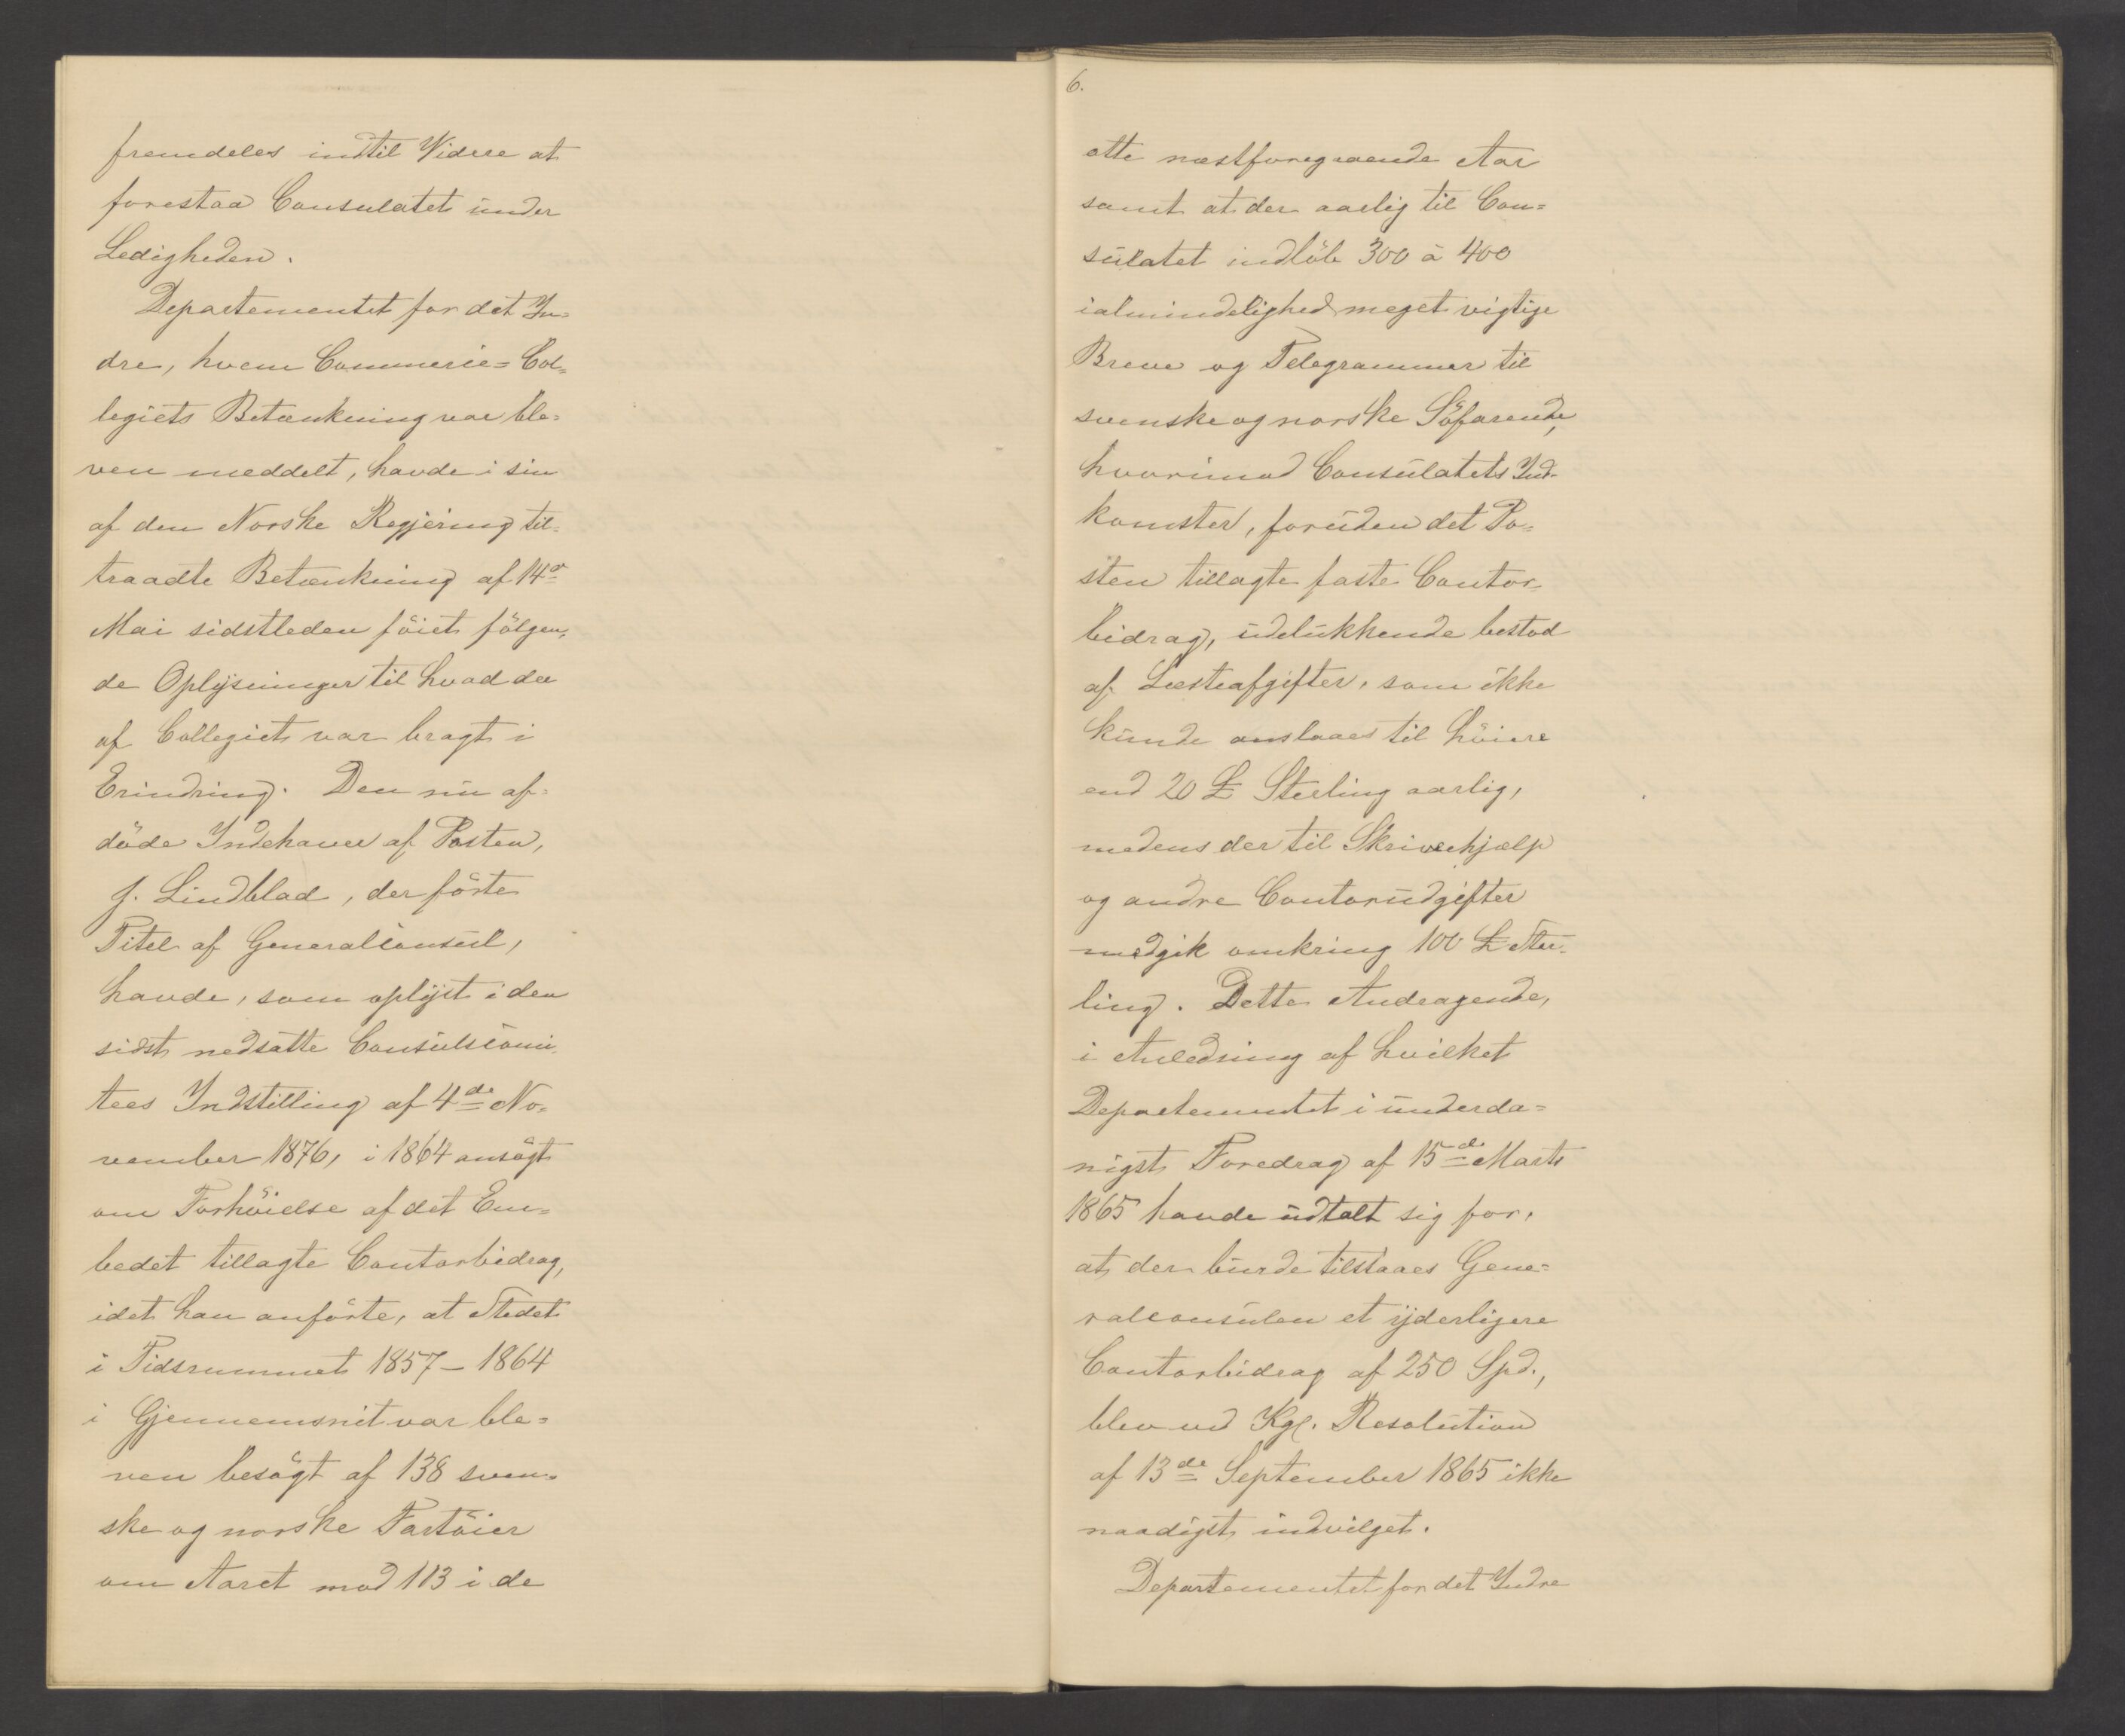 fremdeles indtil Videre at
forestaa Consulatet under
Ledigheden.
Departementet for det In=
dre, hvem Commerce=Col=
legiets Betænkning var ble=
ven meddelt, havde i sin
af den Norske Regjering til=
traadte Betænkning af 14de
Mai sidstleden föiet fölgen=
de Oplysninger til hvad der
af Collegiet var bragt i
Erindring. Den nu af=
döde Indehaver af Posten,
J. Lindblad, der förte
Titel af Generalconsul,
havde, som oplyst i den
sidst nedsatte Consulscomi=
tees Indstilling af 4de No=
vember 1876, i 1864 ansögt
om Forhöielse af det Em=
bedet tillagte Contorbidrag,
idet han anförte, at Stedet
i Tidsrummet 1857–1864
i Gjennemsnit var ble=
ven besögt af 138 sven=
ske og norske Fartöier
om Aaret mod 113 i de
6.
otte næstforegaaende Aar
samt at der aarlig til Con=
sulatet indlöb 300 à 400
ialmindelighed meget vigtige
Breve og Telegrammer til
svenske og norske Söfarende,
hvorimod Consulatets Ind=
komster, foruden det Po=
sten tillagte faste Contor=
bidrag, udelukkende bestod
af Læsteafgifter, som ikke
kunde anslaaes til höiere
end 20 £ Sterling aarlig,
medens der til Skrivehjælp
og andre Contorudgifter
medgik omkring 100 £ Ster=
ling. Dette Andragende,
i Anledning af hvilket
Departementet i underda=
nigst Foredrag af 15de Marts
1865 havde udtalt sig for,
at der burde tilstaaes Gene=
ralconsulen et yderligere
Contorbidrag af 250 Spd.,
blev ved Kgl. Resolution
af 13de September 1865 ikke
naadigst indvilget.
Departementet for det Indre